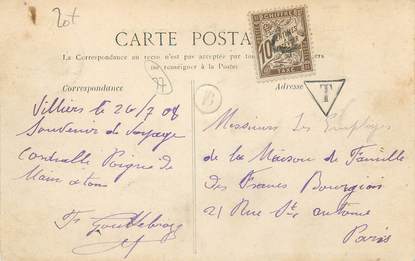 CARTE POSTA
La Correspondance au recto n'est pas acceptée par tou
se renseigner à la Poste
Correspondance
Adresse
CHIFFRE
10
TAXE
T
B
Villiers le 24/7 08
Souvenir de voyage
Cordialle Poigne de
Main a tous
Messieurs Les Employes
de la Maison de Famille
des Francs Bourgeois
21 Rue St antoine
Paris